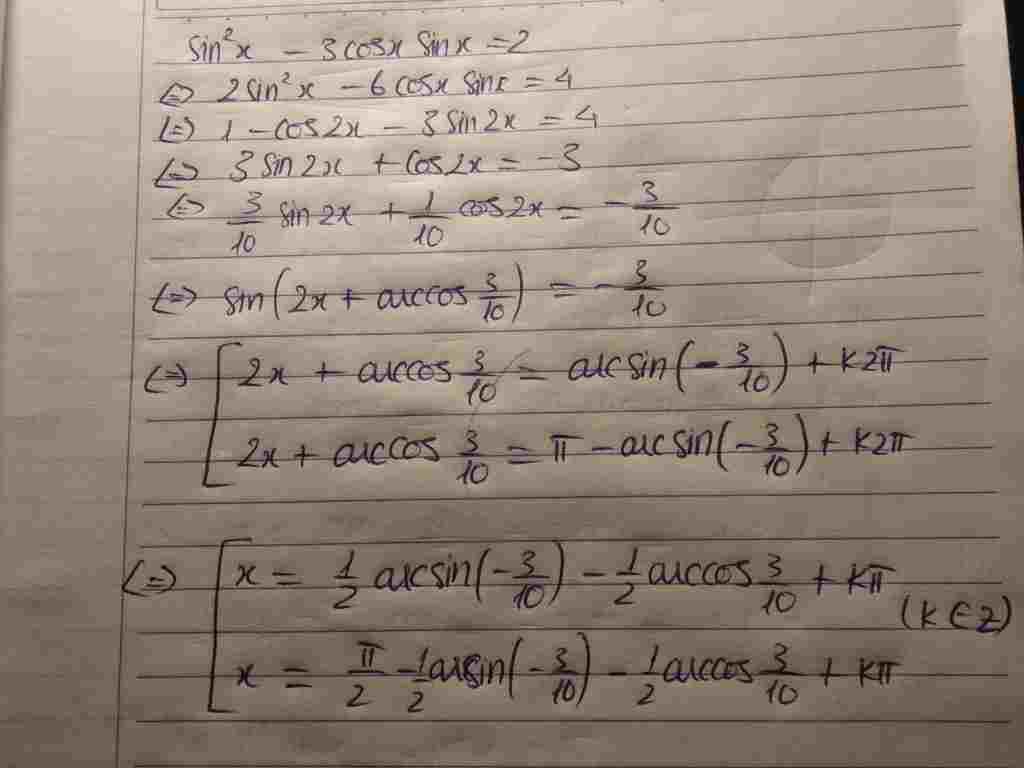 sin²x - 3cosx sinx = 2
<=> 2sin²x - 6cosx sinx = 4
<=> 1 - cos2x - 3sin2x = 4
<=> 3sin2x + cos2x = -3
<=> 3/10 sin2x + 1/10 cos2x = -3/10
<=> sin(2x + arccos 3/10) = -3/10
<=> [ 2x + arccos 3/10 = arcsin(-3/10) + k2π
2x + arccos 3/10 = π - arcsin(-3/10) + k2π
<=> [ x = 1/2 arcsin(-3/10) - 1/2 arccos 3/10 + kπ
(k ∈ Z)
x = π/2 - 1/2 arsin(-3/10) - 1/2 arccos 3/10 + kπ